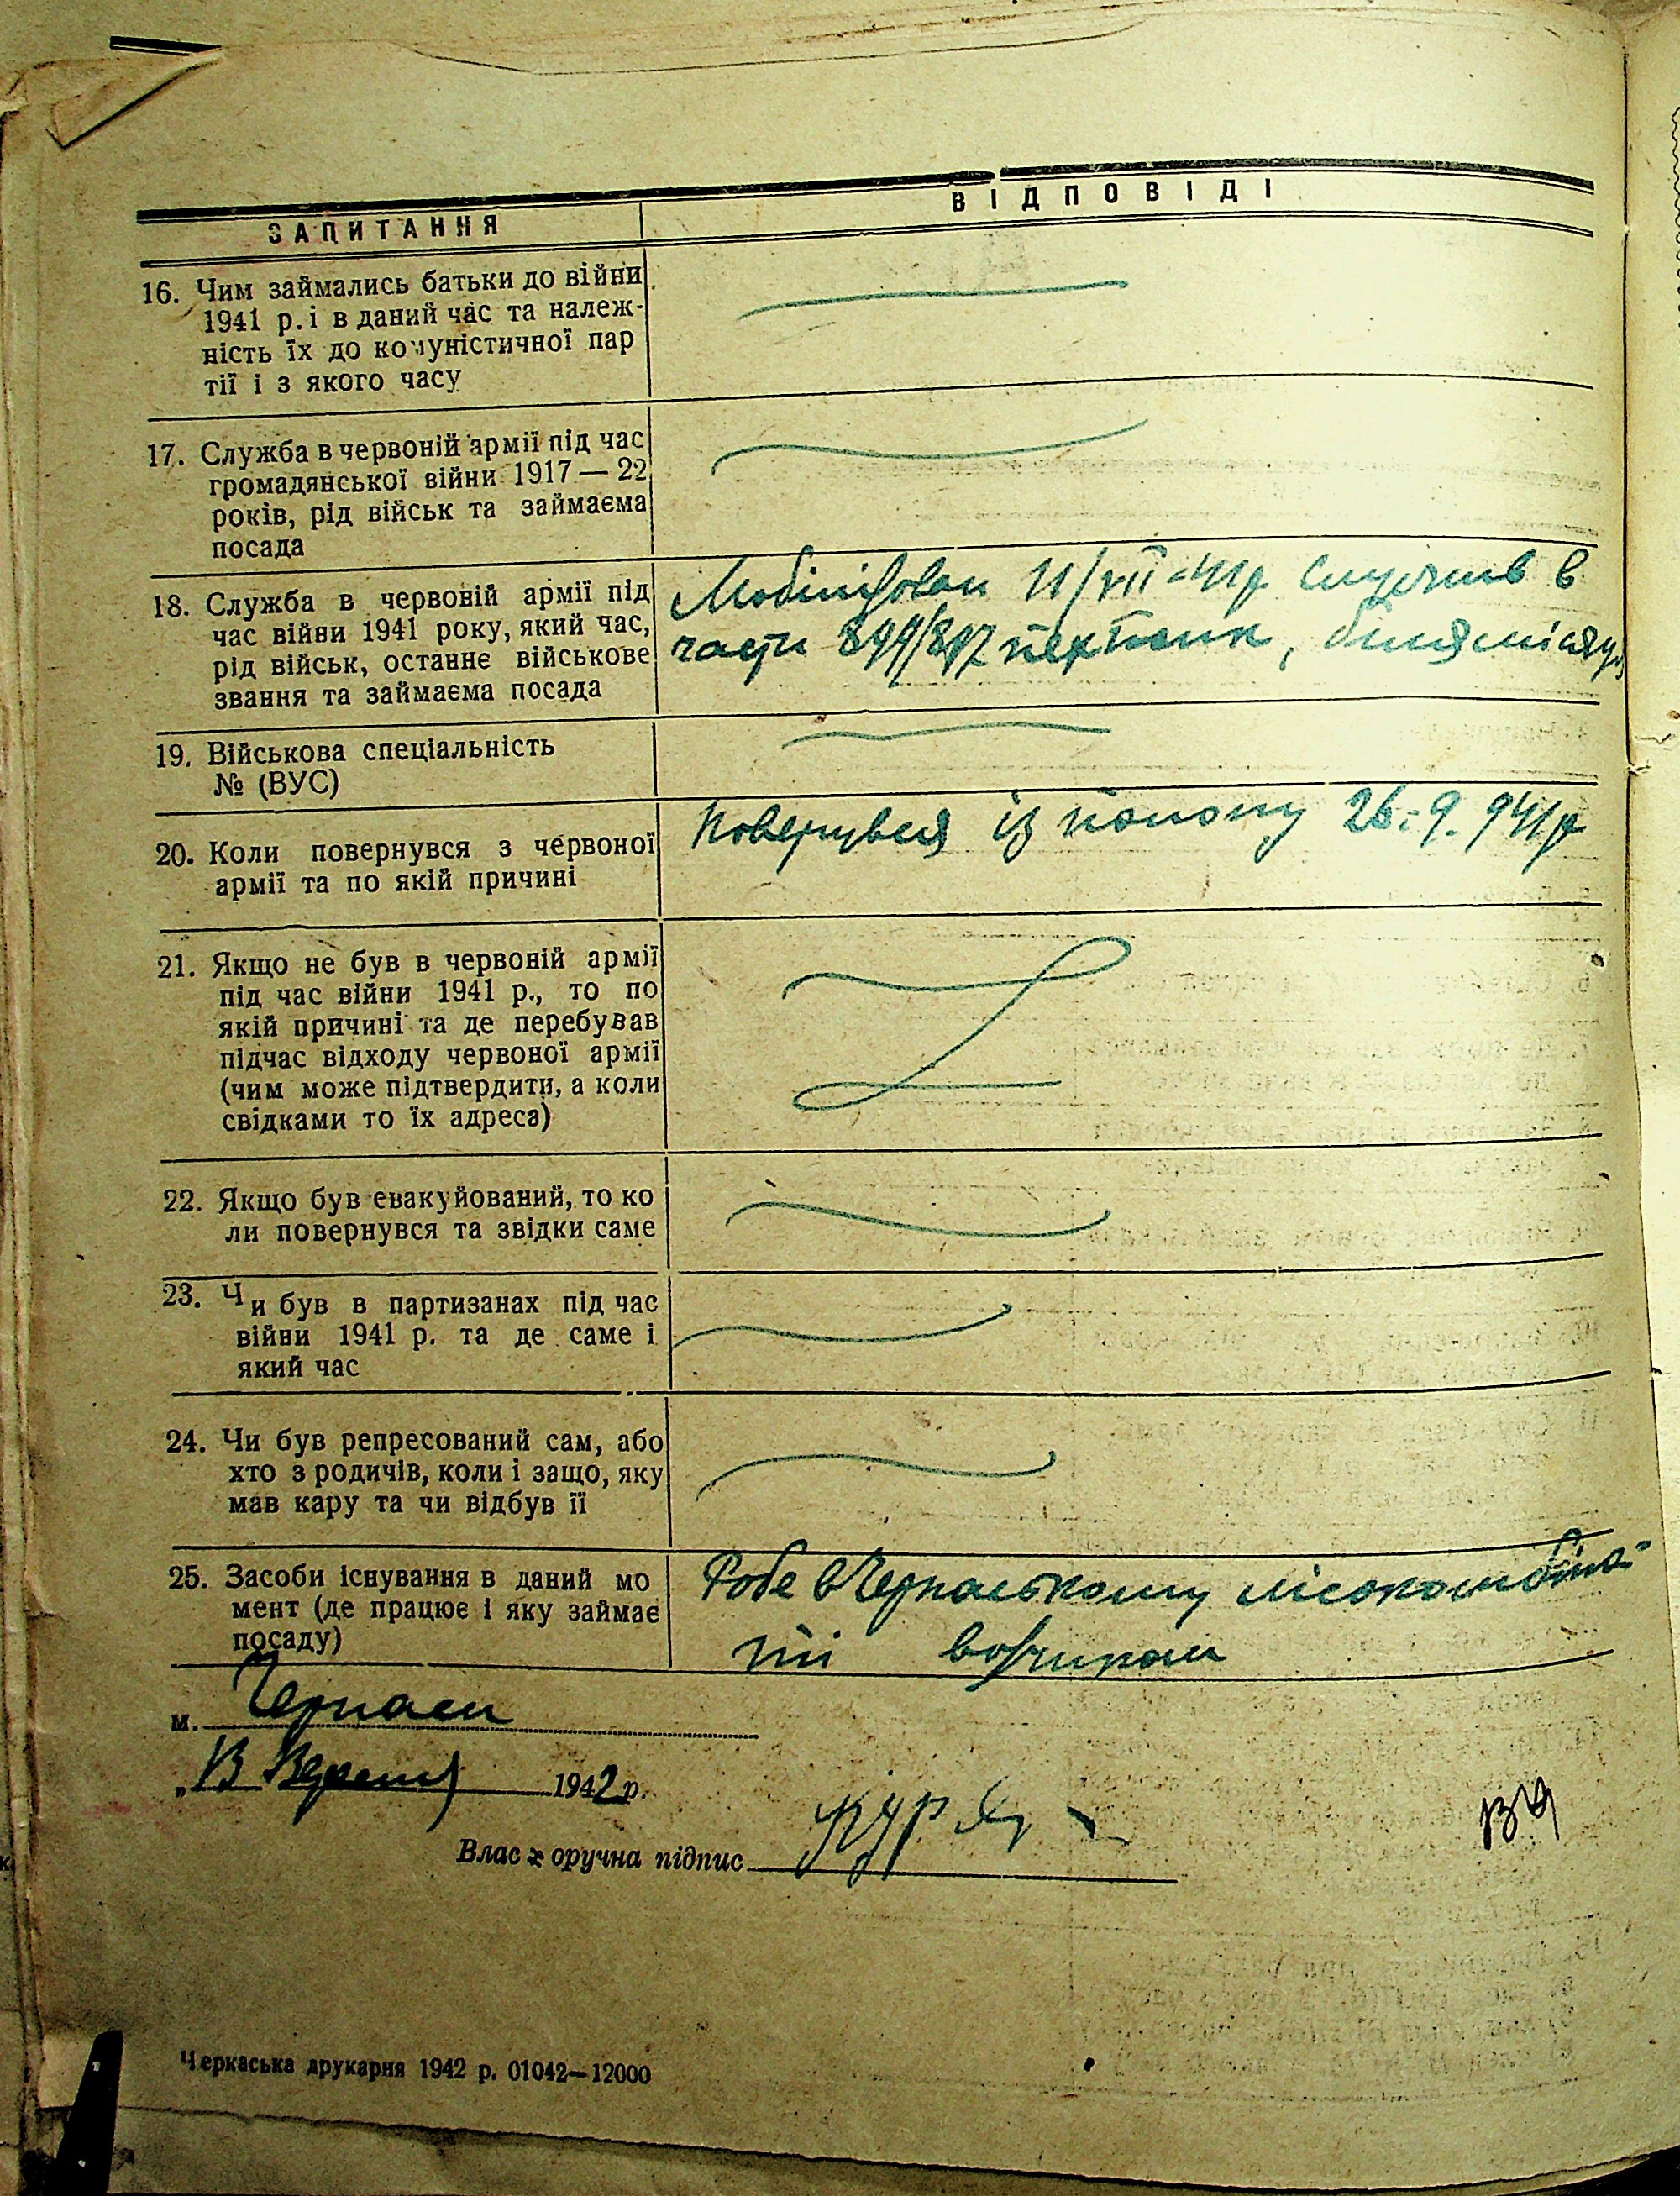 ЗАПИТАННЯ
ВІДПОВІДІ
16. Чим займались батьки до війни
1941 р. і в даний час та належ-
ність їх до комуністичної пар
тії і з якого часу
17. Служба в червоній армії під час
громадянської війни 1917 — 22
років, рід військ та займаєма
посада
18. Служба в червоній армії під
час війни 1941 року, який час,
рід військ, останнє військове
звання та займаєма посада
Мобілізован 11/VII-41р служив в
части 899/897 пех полк, біля місяця
19. Військова спеціальність
№ (ВУС)
20. Коли повернувся з червоної
армії та по якій причині
Повернувся із полону 26.9.941р
21. Якщо не був в червоній армії
під час війни 1941 р., то по
якій причині та де перебував
підчас відходу червоної армії
(чим може підтвердити, а коли
свідками то їх адреса)
22. Якщо був евакуйований, то ко
ли повернувся та звідки саме
23. Чи був в партизанах під час
війни 1941 р. та де саме і
який час
24. Чи був репресований сам, або
хто з родичів, коли і защо, яку
мав кару та чи відбув її
25. Засоби існування в даний мо
мент (де працює і яку займає
посаду)
Робе в Черкаському лісокомбіна-
ті возчиком
м. Черкаси
„13 Вересня 1942 р.
Власноручна підпис
Черкаська друкарня 1942 р. 01042—12000